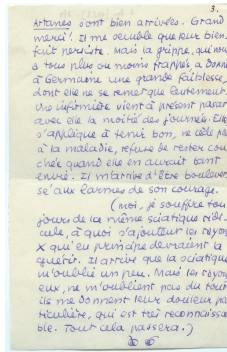 3.
Artanes sont bien arrivées. Grand
merci ! Il me semble que leur bien-
fait persiste. Mais la grippe, qui nous
a tous plus ou moins frappés, a donné
à Germaine une grande faiblesse,
dont elle ne se remet que lentement.
Une infirmière vient à présent passer
avec elle la moitié des journées. Elle
s'applique à tenir bon, ne cède pas
à la maladie, refuse de rester cou-
chée quand elle en aurait tant
envie. Il m'arrive d'être boulever-
sé aux larmes de son courage.
(Moi, je souffre tou-
jours de la même sciatique ridi-
cule, à quoi s'ajoutent les rayons
X qui en principe devraient la
guérir. Il arrive que la sciatique
m'oublie un peu. Mais les rayons
eux, ne m'oublient pas du tout
ils me donnent leur douleur pa
ticulière, qui est très reconnaissa-
ble. Tout cela passera.)